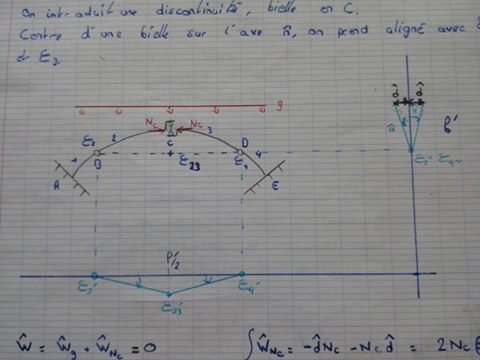 On introduit une discontinuité, bielle en C.
Centre d'une bielle sur l'axe n̂, on prend aligné avec
et E3.
g
Nc Nc
E2 2 3 D
1 B C E23 E4 4
A E
d̂ d̂
2 b'
E2' E4'
P/2
E2' E4'
E23'
Ŵ = Ŵg + ŴNc = 0
∫ŴNc = -d̂Nc - Nc d̂ = 2Nc